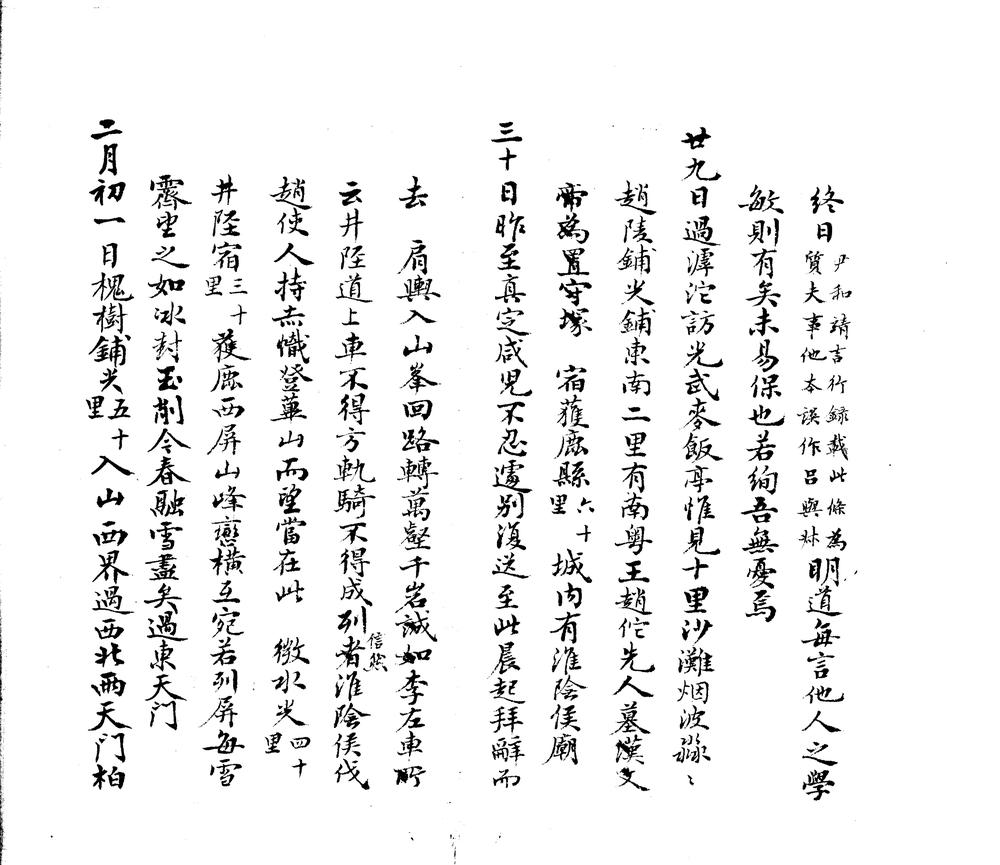 終日尹和靖言行錄載此條為質夫事他本誤作呂與叔明道每言他人之學
敏則有矣未易保也若絢吾無憂焉
廿九日過滹沱訪光武麥飯亭惟見十里沙灘烟波淼〻
趙陵鋪尖鋪東南二里有南粵王趙佗先人墓漢文
帝為置守塚　宿獲鹿縣六十里城内有淮陰侯廟
三十日昨至真定咸児不忍遽别復送至此晨起拜辭而
去　肩輿入山峯回路轉萬壑千岩誠如李左車所
云井陘道上車不得方軌騎不得成列者信然淮陰侯伐
趙使人持赤幟登萆山而望當在此　微水尖四十里
井陘宿三十里獲鹿西屏山峰巒橫互宛若列屏每雪
霽望之如冰封玉削令春融雪盡矣過東天门
二月初一日槐樹鋪尖五十里入山西界過西北兩天门柏